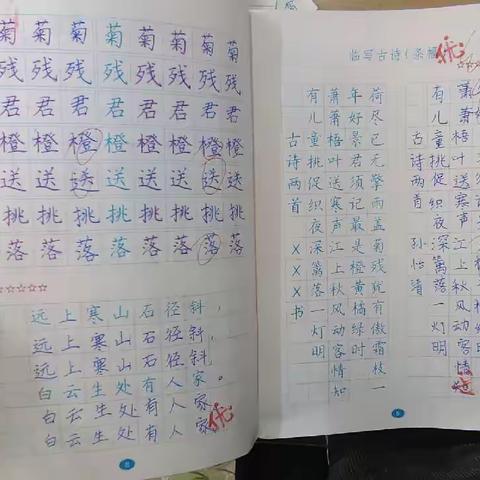 菊菊菊菊菊菊菊菊
残残残残残残残残
君君君君君君君君
橙橙橙橙橙橙橙橙
送送送送送送送送
挑挑挑挑挑挑挑挑
落落落落落落落落
远上寒山石径斜，
远上寒山石径斜，
远上寒山石径斜
白云生处有人家。
白云生处有人家
白云生处有人家
优
6
临写古诗(条幅
优
荷尽已无擎雨盖菊残犹有傲霜枝一
年好景君须记最是橙黄橘绿时
萧萧梧叶送寒声江上秋风动客情知
有儿童挑促织夜深篱落一灯明
古诗两首XX书
萧萧梧叶送寒声江上秋风动客情
有儿童挑促织夜深篱落一灯明
古诗两首孙怡清